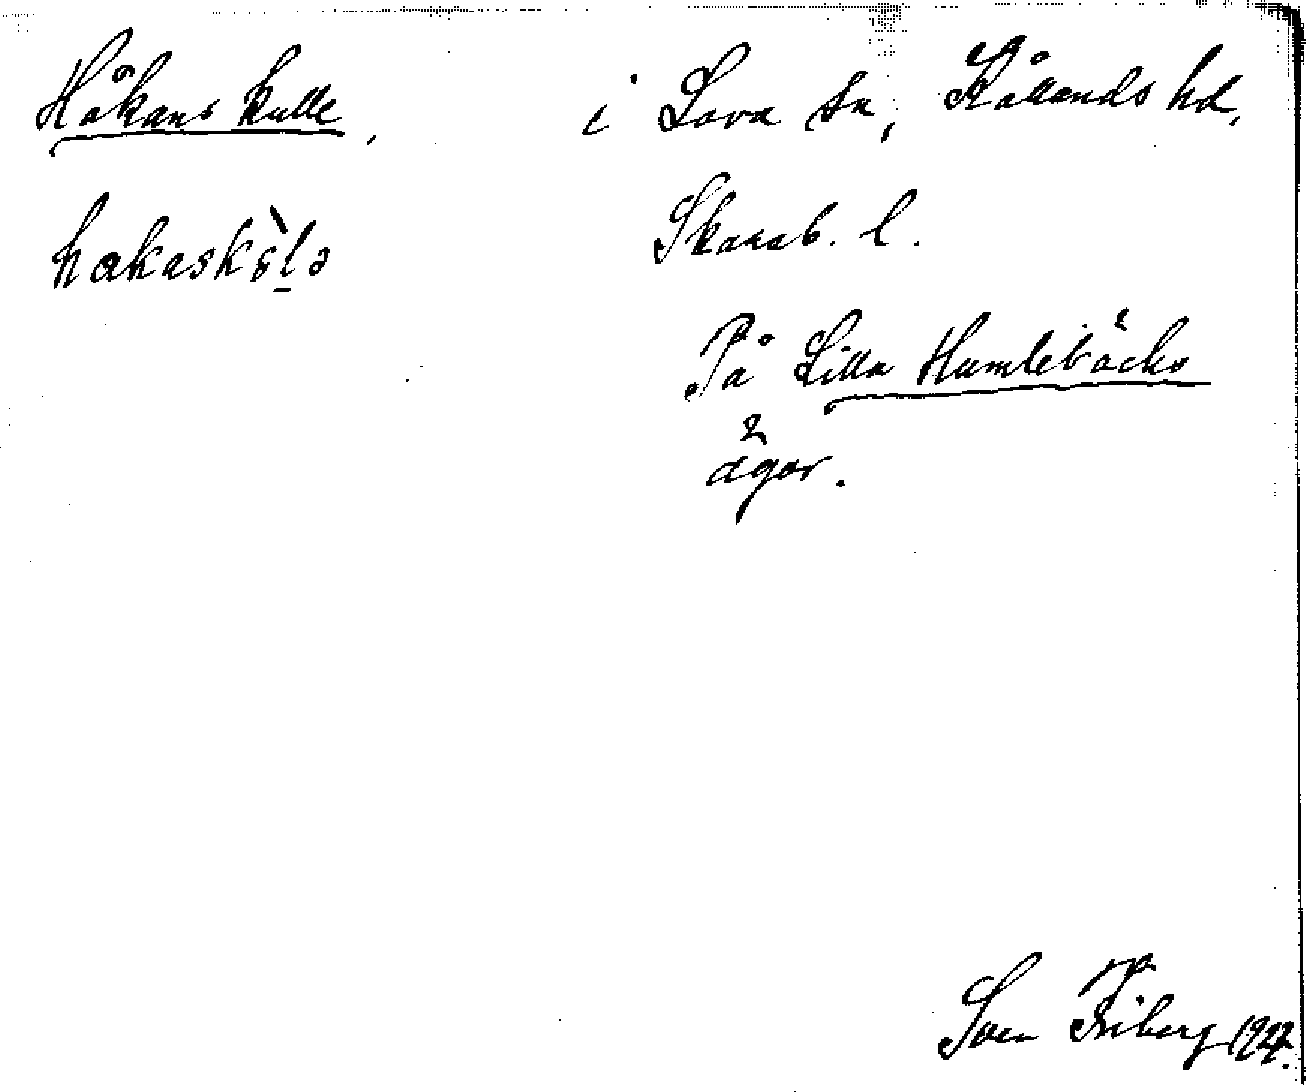 Håkans kulle, i Lova sn, Kållands hd,
Skarab. l.
På Lilla Humlebäcks
ägor.
Sven Friberg 1927.